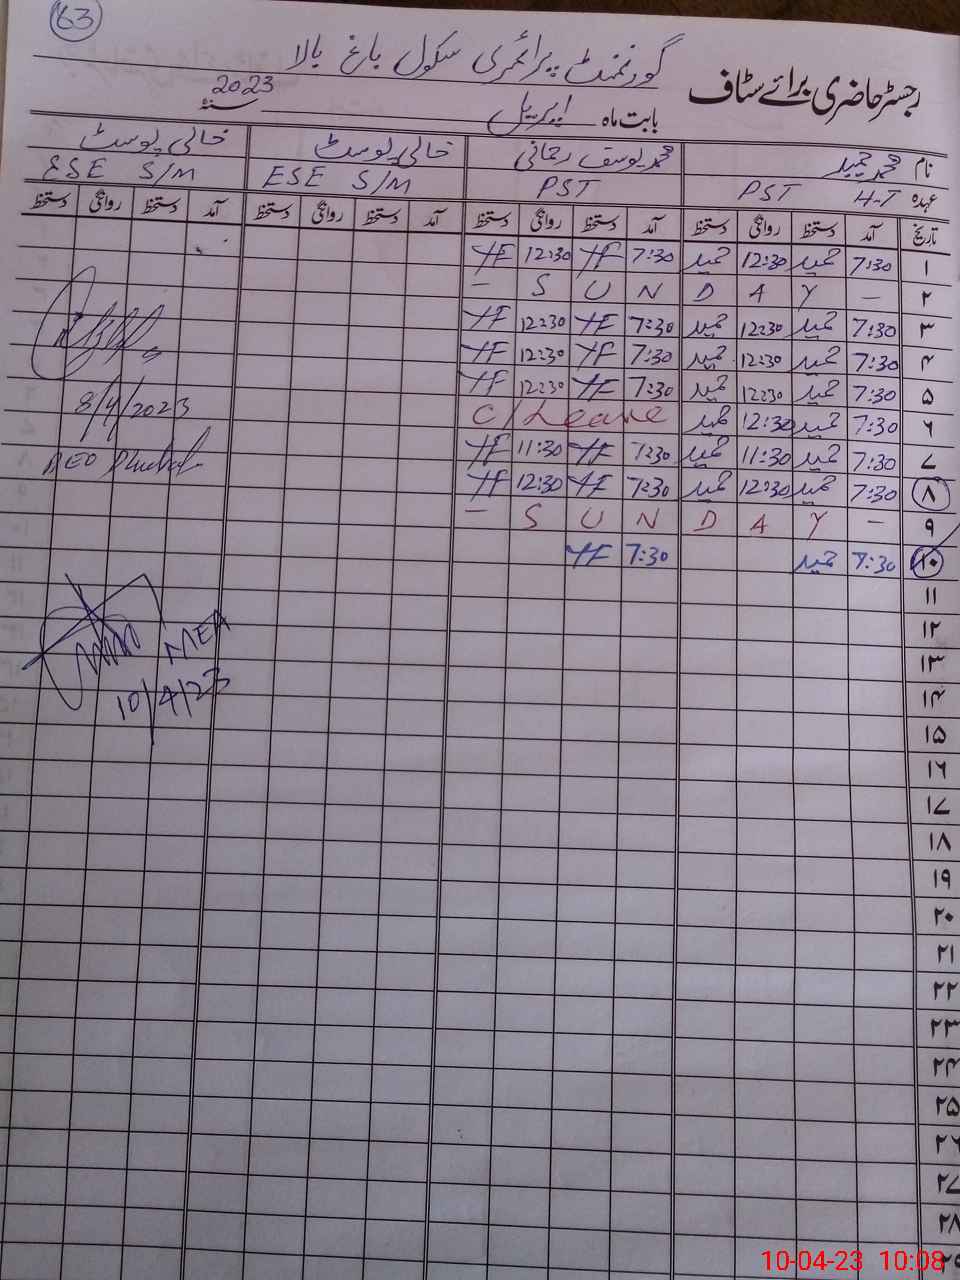 63
گورنمنٹ پرائمری سکول باغ بالا
رجسٹر حاضری برائے سٹاف
بابت ماہ اپریل سنہ 2023
نام محمد حمید محمد یوسف رحمانی خالی پوسٹ خالی پوسٹ
عہدہ H-T PST PST ESE S/M ESE S/M
تاریخ آمد دستخط روانگی دستخط آمد دستخط روانگی دستخط آمد دستخط روانگی دستخط آمد دستخط روانگی دستخط
۱ 7:30 حمید 12:30 حمید 7:30 YF 12:30 YF
۲ - S U N D A Y -
۳ 7:30 حمید 12:30 حمید 7:30 YF 12:30 YF
۴ 7:30 حمید 12:30 حمید 7:30 YF 12:30 YF
۵ 7:30 حمید 12:30 حمید 7:30 YF 12:30 YF
۶ 7:30 حمید 12:30 حمید C/Leave
۷ 7:30 حمید 11:30 حمید 7:30 YF 11:30 YF
۸ 7:30 حمید 12:30 حمید 7:30 YF 12:30 YF
۹ - S U N D A Y -
۱۰ 7:30 حمید 7:30 YF
۱۱
۱۲
۱۳
۱۴
۱۵
۱۶
۱۷
۱۸
۱۹
۲۰
۲۱
۲۲
۲۳
۲۴
۲۵
۲۶
۲۷
۲۸
۲۹
8/4/2023
AEO
MEA
10/4/23
10-04-23 10:08